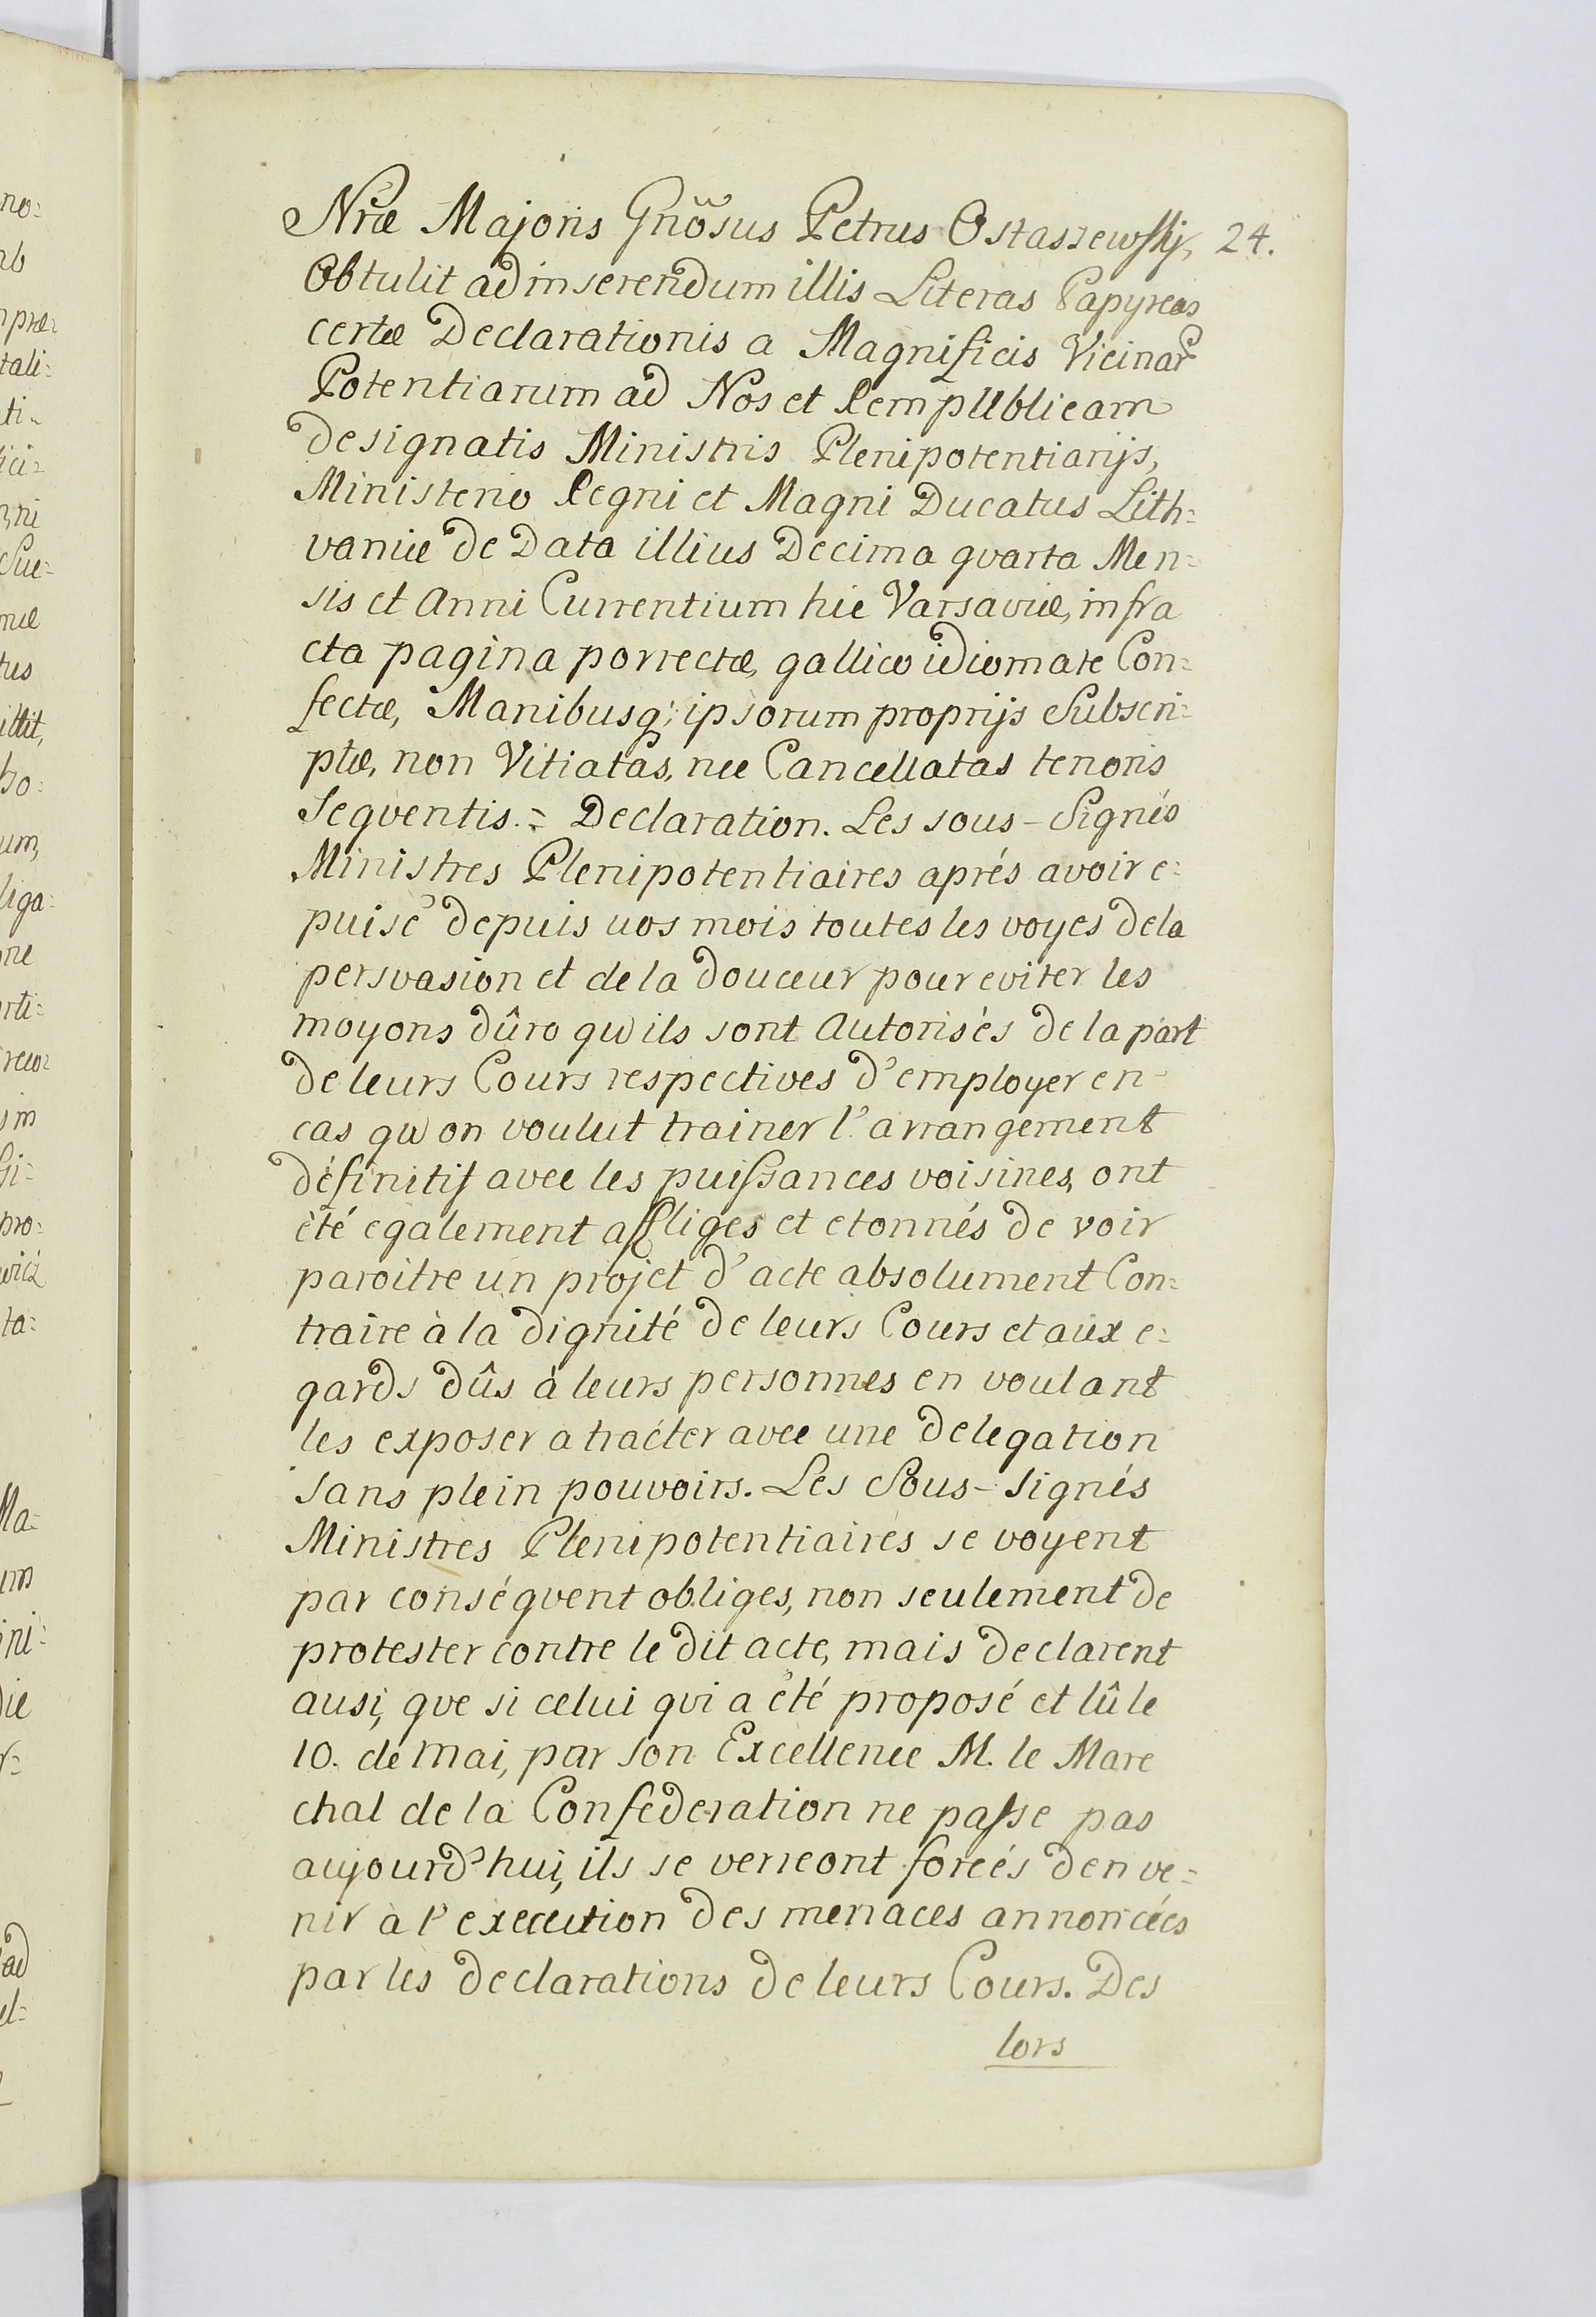 Nræ Majoris Gnõsus Petrus Ostaszewskj, 24.
Obtulit ad inserendum illis Literas Papyreas
certæ Declarationis a Magnificis Vicinar
Potentiarum ad Nos et Rempublicam
designatis Ministris Plenipotentiarijs,
Ministerio Regni et Magni Ducatus Lith=
vaniæ de Data illius Decima qvarta Men=
sis et Anni Currentium hic Varsaviæ, infra
cta pagina porrectæ, gallico idiomate Con=
fectæ, Manibusq; ipsorum proprijs Subscri=
ptæ, non Vitiatas, nec Cancellatas tenoris
Seqventis.= Declaration. Les sous-Signés
Ministres Plenipotentiaires aprés avoir e=
puisé depuis uos mois toutes les voyes dela
persvasion et de la douceur pour eviter les
moyons dûro qu ils sont Autorisés de la part
de leurs Cours respectives d'employer en=
cas qu on voulut trainer l'arrangement
définitif avec les puissances voisines, ont
été egalement affliges et etonnés de voir
paroitre un projet d'acte absolument Con=
traire à la dignité de leurs Cours et aux e=
gards dûs à leurs personnes en voulant
les exposer a tracter avec une delegation
sans plein pouvoirs. Les Sous-signés
Ministres Plenipotentiaires se voyent
par conséqvent obliges, non seulement de
protester contre le dit acte, mais declarent
ausi, qve si celui qvi a été proposé et lû le
10. de Mai, par Son Excellence M. le Mare
chal de la Confederation ne passe pas
aujourd'hui, ils se verreont forcés den ve=
nir à l'execution des menaces annoncées
par les declarations de leurs Cours. Des
lors